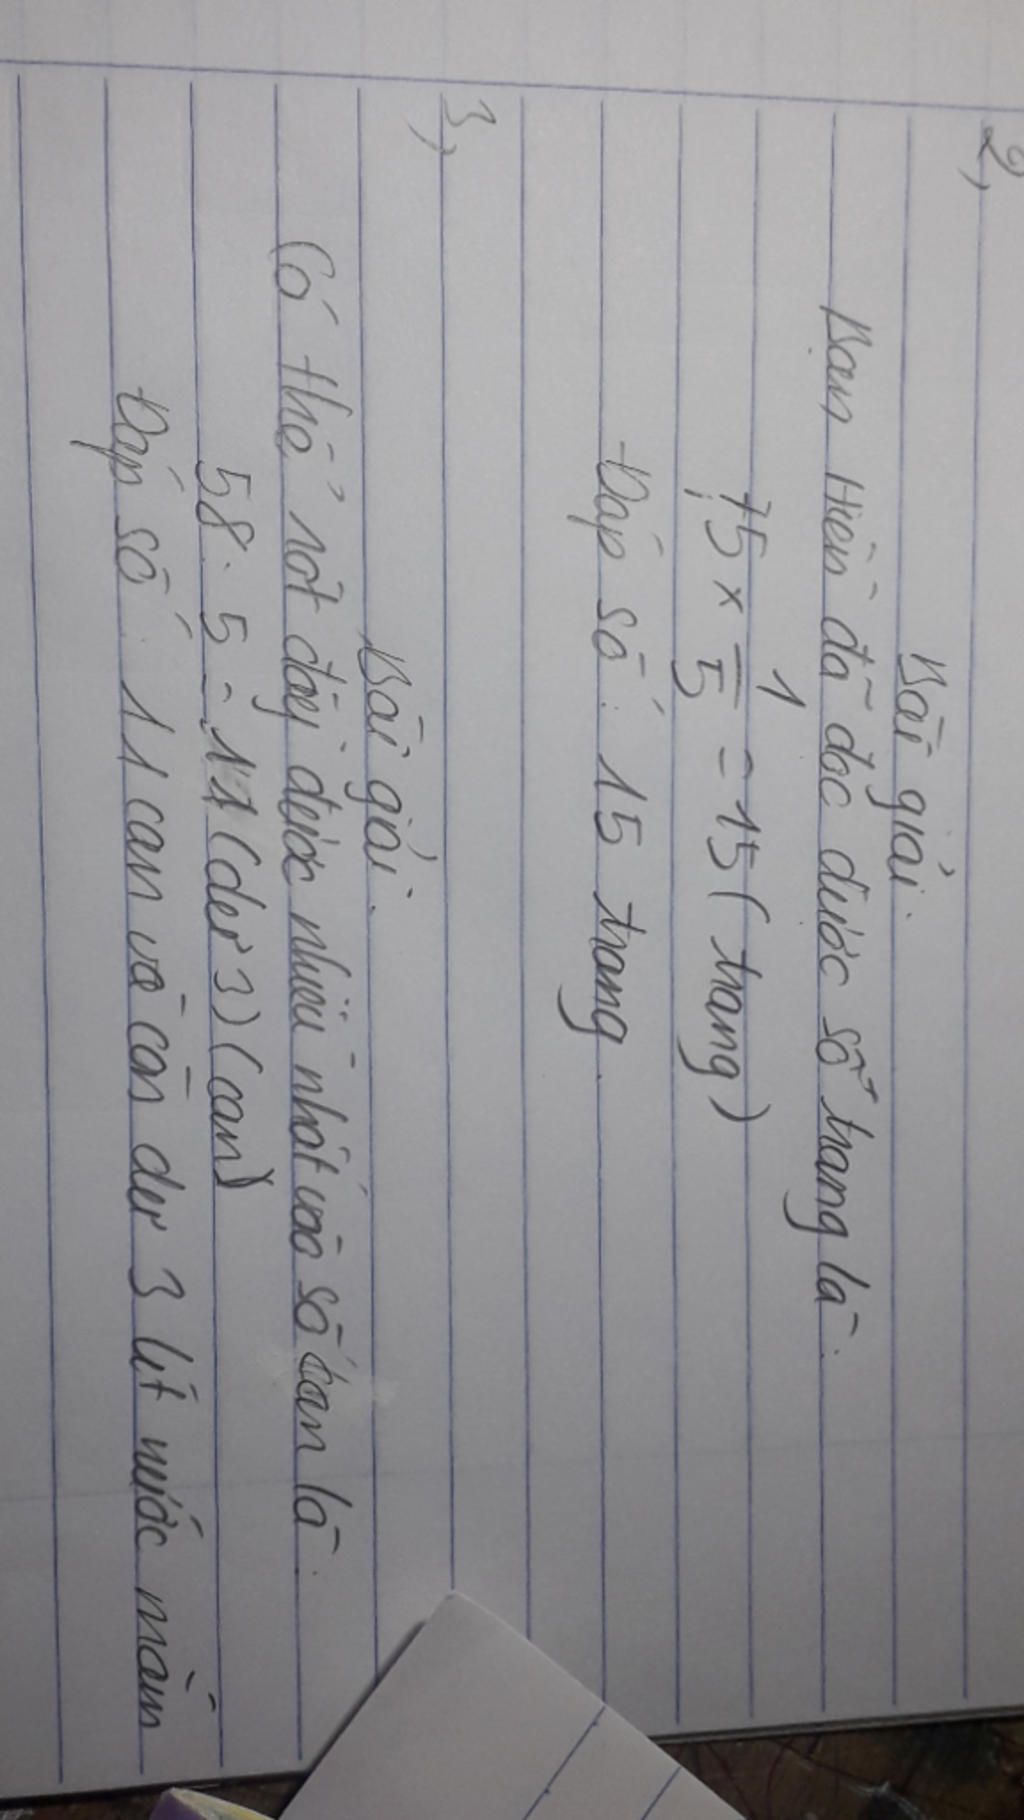 2,
Bài giải.
Bạn Hiền đã đọc được số trang là:
75 × 1/5 = 15 (trang)
Đáp số: 15 trang.
3,
Bài giải.
Có thể rót đầy được nhiều nhất vào số can là:
58 : 5 = 11 (dư 3) (can)
Đáp số: 11 can và còn dư 3 lít nước mắm